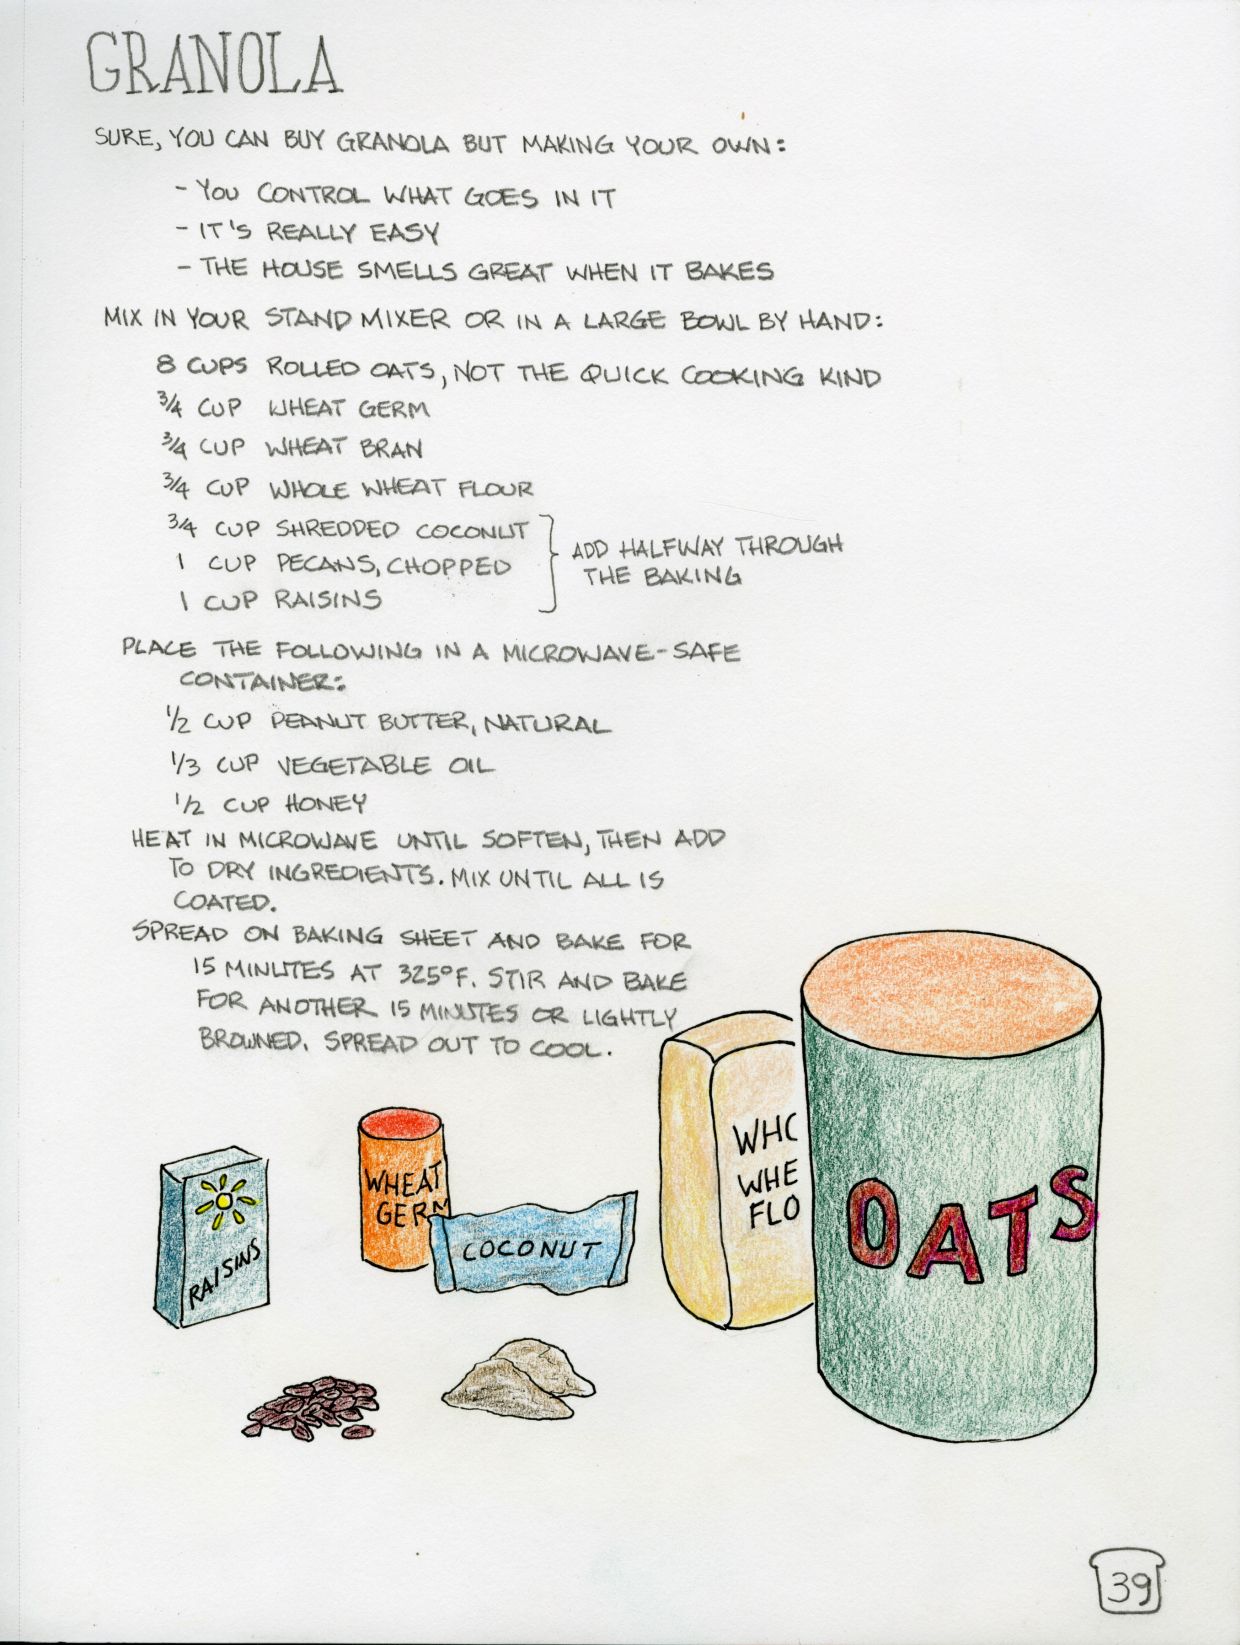 GRANOLA
SURE, YOU CAN BUY GRANOLA BUT MAKING YOUR OWN:
- YOU CONTROL WHAT GOES IN IT
- IT'S REALLY EASY
- THE HOUSE SMELLS GREAT WHEN IT BAKES
MIX IN YOUR STAND MIXER OR IN A LARGE BOWL BY HAND:
8 CUPS ROLLED OATS, NOT THE QUICK COOKING KIND
3/4 CUP WHEAT GERM
3/4 CUP WHEAT BRAN
3/4 CUP WHOLE WHEAT FLOUR
3/4 CUP SHREDDED COCONUT
1 CUP PECANS, CHOPPED
1 CUP RAISINS
ADD HALFWAY THROUGH
THE BAKING
PLACE THE FOLLOWING IN A MICROWAVE-SAFE
CONTAINER:
1/2 CUP PEANUT BUTTER, NATURAL
1/3 CUP VEGETABLE OIL
1/2 CUP HONEY
HEAT IN MICROWAVE UNTIL SOFTEN, THEN ADD
TO DRY INGREDIENTS. MIX UNTIL ALL IS
COATED.
SPREAD ON BAKING SHEET AND BAKE FOR
15 MINUTES AT 325°F. STIR AND BAKE
FOR ANOTHER 15 MINUTES OR LIGHTLY
BROWNED. SPREAD OUT TO COOL.
RAISINS
WHEAT
GERM
COCONUT
WHO
WHE
FLO
OATS
39